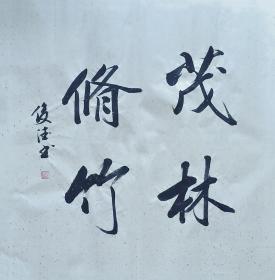 茂林
脩竹
俊德书